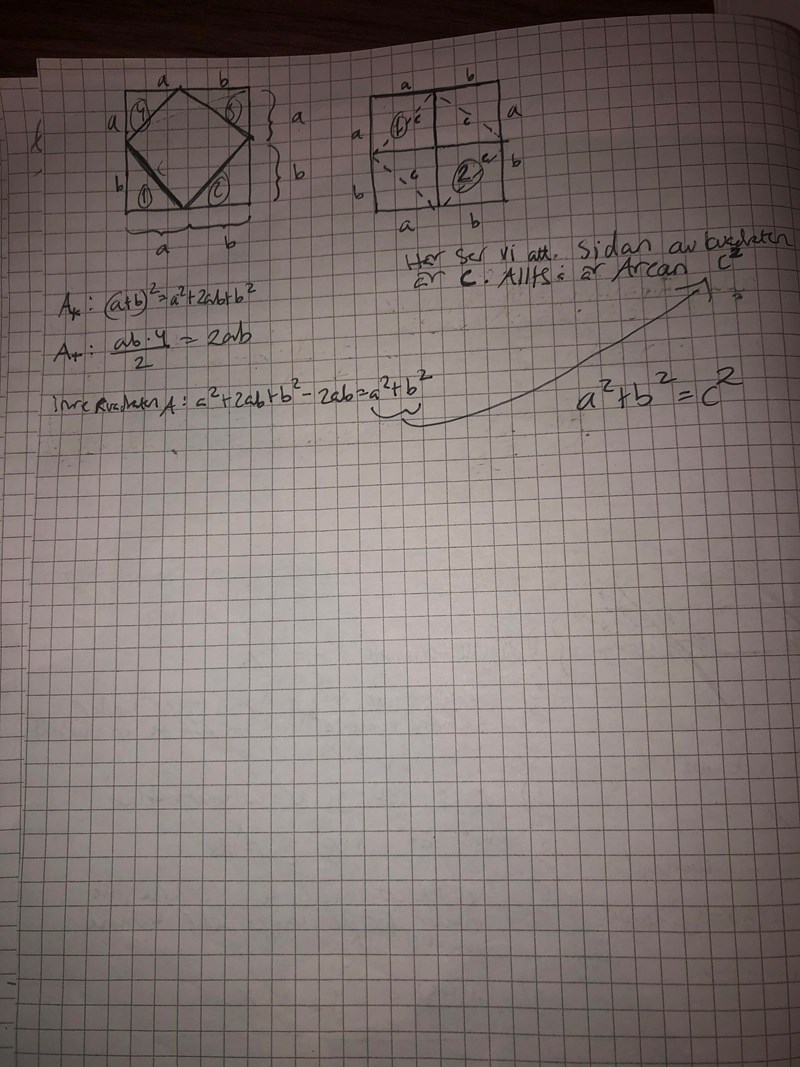 a b
a 4 3 a
b 1 c 2 b
a b
a b
a 1 c c a
b c 2 c b
a b
Här ser vi att. Sidan av kvadraten
är c. Alltså är Arean c²
A□: (a+b)²=a²+2ab+b²
A△: ab·4/2 = 2ab
Inre kvadraten A: a²+2ab+b²-2ab=a²+b²
a²+b²=c²